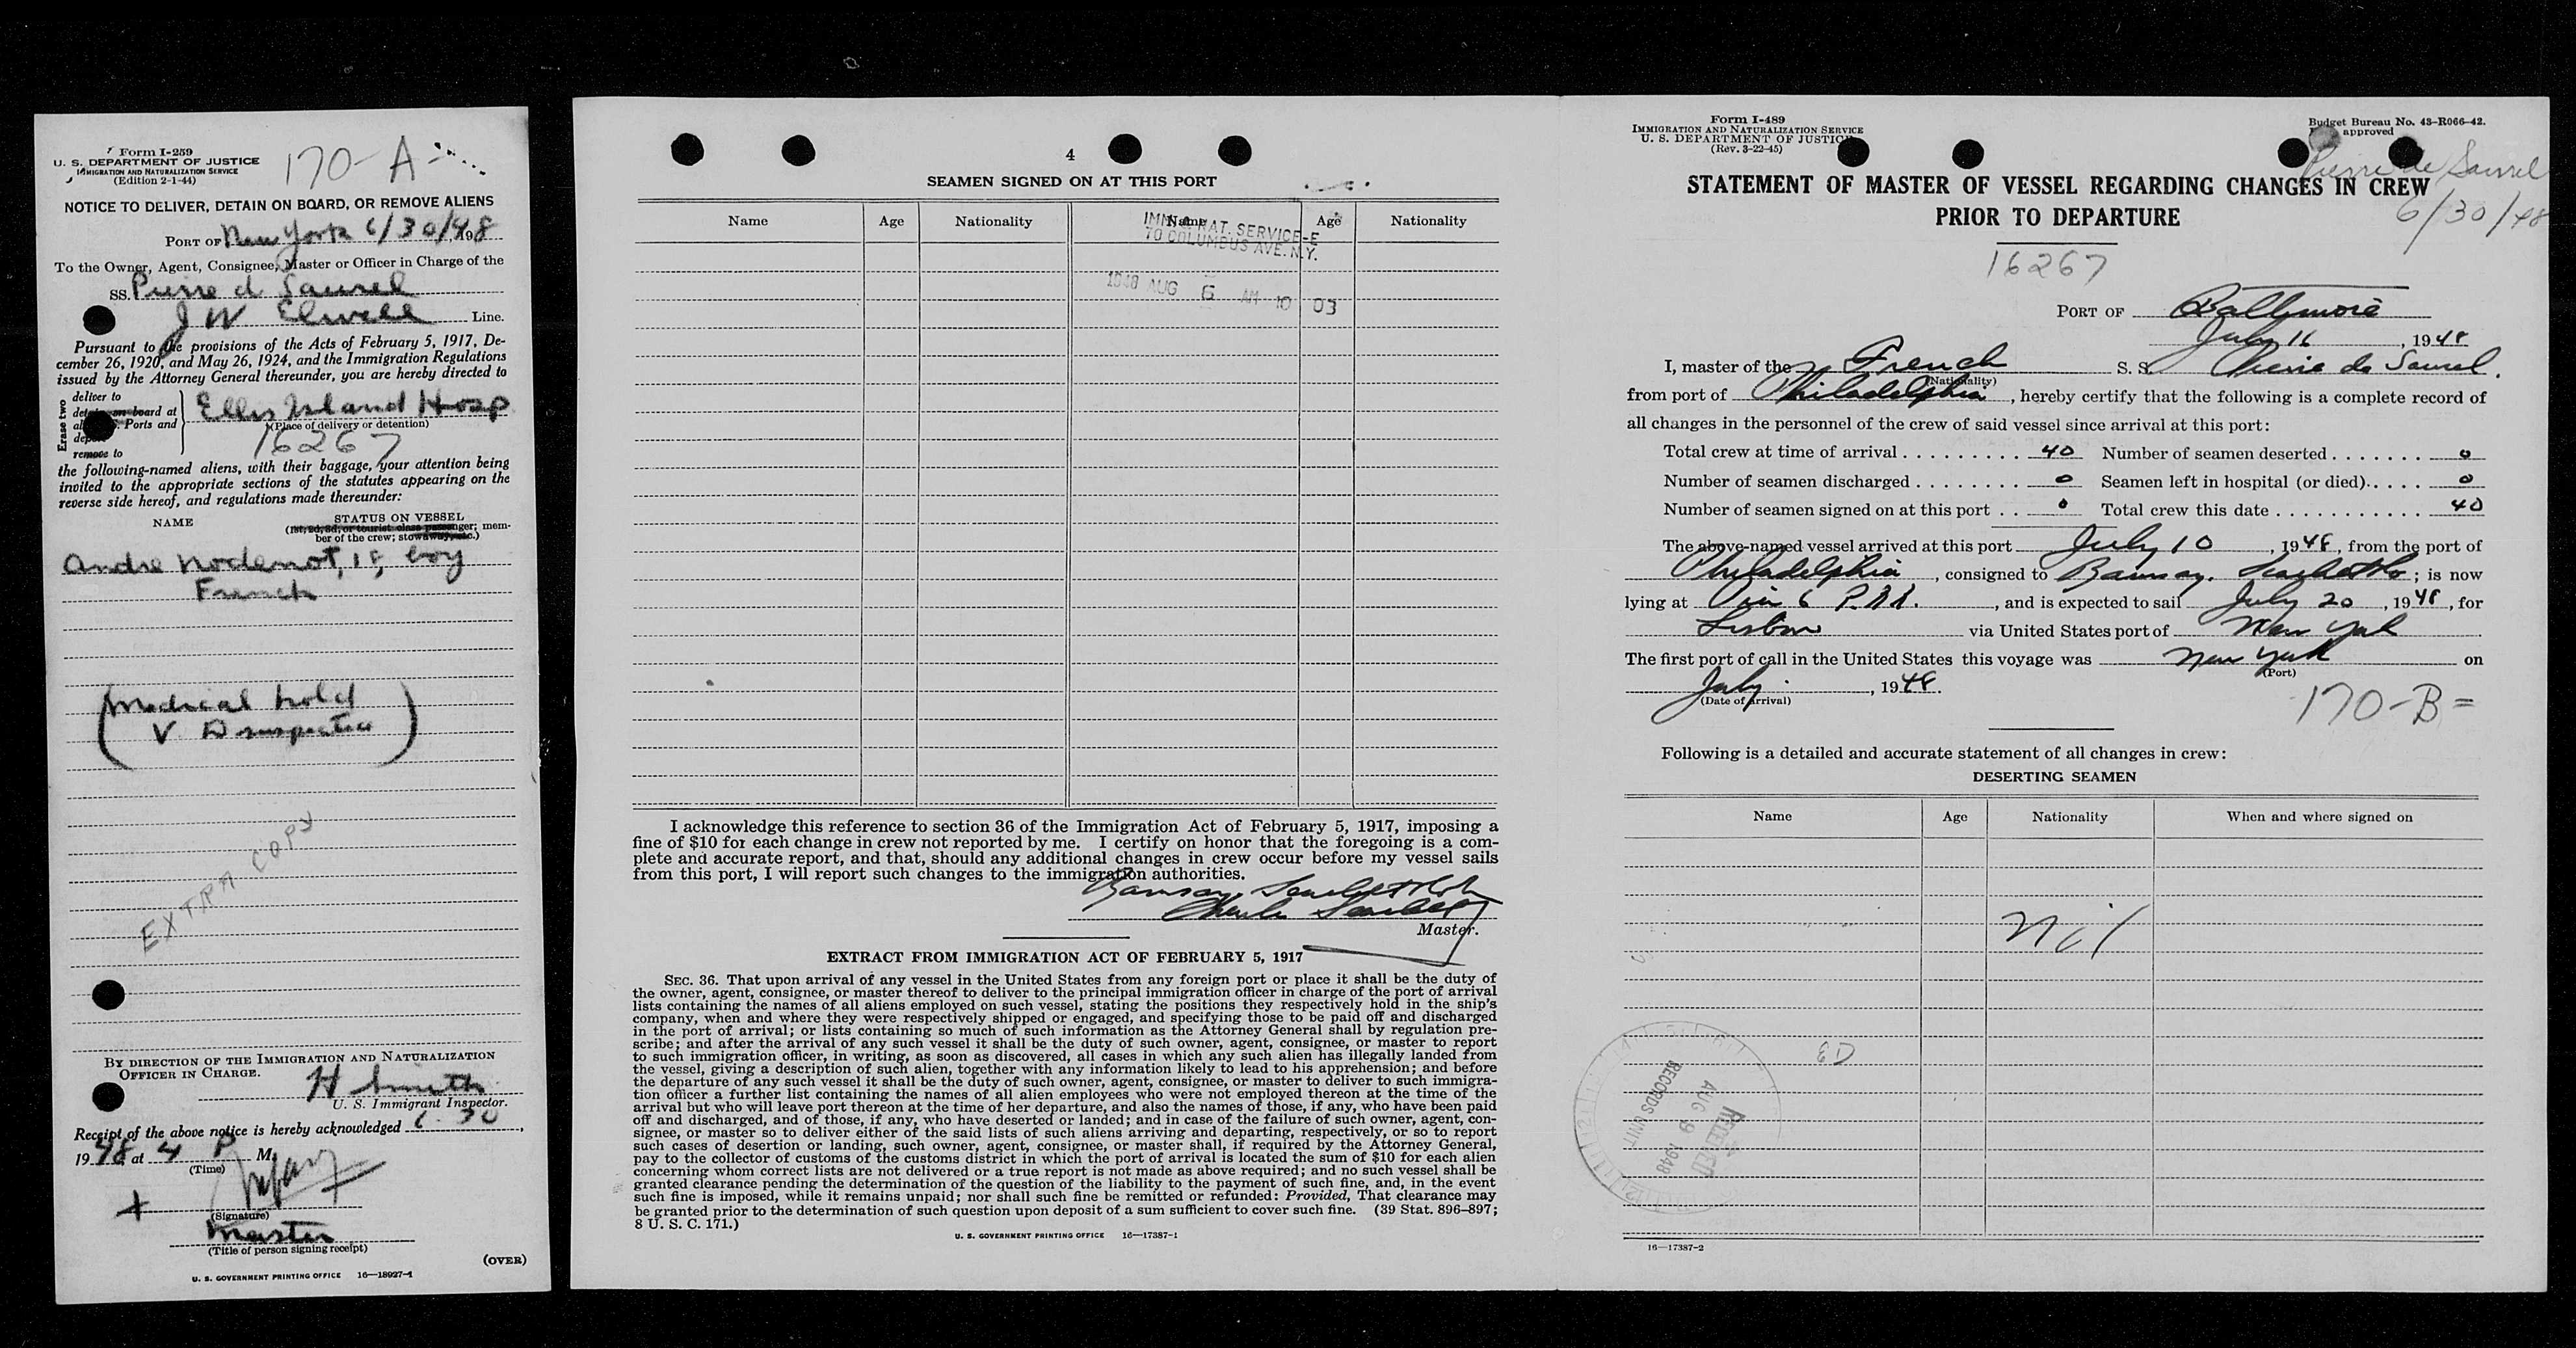 Form I-259
U. S. DEPARTMENT OF JUSTICE
IMMIGRATION AND NATURALIZATION SERVICE
(Edition 2-1-44)
170-A
NOTICE TO DELIVER, DETAIN ON BOARD, OR REMOVE ALIENS
PORT OF New York 6/30/1948
To the Owner, Agent, Consignee, Master or Officer in Charge of the
SS. Pierre d Saurel
J W Elwell Line.
Pursuant to the provisions of the Acts of February 5, 1917, De-
cember 26, 1920, and May 26, 1924, and the Immigration Regulations
issued by the Attorney General thereunder, you are hereby directed to
Erase two
deliver to
detain on board at
Ports and
remove to
Ellis Island Hosp
(Place of delivery or detention)
16267
the following-named aliens, with their baggage, your attention being
invited to the appropriate sections of the statutes appearing on the
reverse side hereof, and regulations made thereunder:
NAME
STATUS ON VESSEL
(1st, 2d, 3d, or tourist class passenger; mem-
ber of the crew; stowaway, etc.)
Andre Nodenot, 18, boy
French
(Medical hold
V D suspected)
EXTRA COPY
BY DIRECTION OF THE IMMIGRATION AND NATURALIZATION
OFFICER IN CHARGE.
H Smith
U. S. Immigrant Inspector.
Receipt of the above notice is hereby acknowledged 6-30,
1948 at 4 P M.
(Time)
+
(Signature)
Master
(Title of person signing receipt)
(OVER)
U. S. GOVERNMENT PRINTING OFFICE 16—18027-1
4
SEAMEN SIGNED ON AT THIS PORT
Name Age Nationality Name Age Nationality
IMM. & NAT. SERVICE-E
70 COLUMBUS AVE. N.Y.
1948 AUG 6 AM 10 03
I acknowledge this reference to section 36 of the Immigration Act of February 5, 1917, imposing a
fine of $10 for each change in crew not reported by me. I certify on honor that the foregoing is a com-
plete and accurate report, and that, should any additional changes in crew occur before my vessel sails
from this port, I will report such changes to the immigration authorities.
Ramsay, Scarlett & Co
Charles Scarlett
Master.
EXTRACT FROM IMMIGRATION ACT OF FEBRUARY 5, 1917
SEC. 36. That upon arrival of any vessel in the United States from any foreign port or place it shall be the duty of
the owner, agent, consignee, or master thereof to deliver to the principal immigration officer in charge of the port of arrival
lists containing the names of all aliens employed on such vessel, stating the positions they respectively hold in the ship's
company, when and where they were respectively shipped or engaged, and specifying those to be paid off and discharged
in the port of arrival; or lists containing so much of such information as the Attorney General shall by regulation pre-
scribe; and after the arrival of any such vessel it shall be the duty of such owner, agent, consignee, or master to report
to such immigration officer, in writing, as soon as discovered, all cases in which any such alien has illegally landed from
the vessel, giving a description of such alien, together with any information likely to lead to his apprehension; and before
the departure of any such vessel it shall be the duty of such owner, agent, consignee, or master to deliver to such immigra-
tion officer a further list containing the names of all alien employees who were not employed thereon at the time of the
arrival but who will leave port thereon at the time of her departure, and also the names of those, if any, who have been paid
off and discharged, and of those, if any, who have deserted or landed; and in case of the failure of such owner, agent, con-
signee, or master so to deliver either of the said lists of such aliens arriving and departing, respectively, or so to report
such cases of desertion or landing, such owner, agent, consignee, or master shall, if required by the Attorney General,
pay to the collector of customs of the customs district in which the port of arrival is located the sum of $10 for each alien
concerning whom correct lists are not delivered or a true report is not made as above required; and no such vessel shall be
granted clearance pending the determination of the question of the liability to the payment of such fine, and, in the event
such fine is imposed, while it remains unpaid; nor shall such fine be remitted or refunded: Provided, That clearance may
be granted prior to the determination of such question upon deposit of a sum sufficient to cover such fine. (39 Stat. 896–897;
8 U. S. C. 171.)
U. S. GOVERNMENT PRINTING OFFICE 16—17387-1
Form I-489
IMMIGRATION AND NATURALIZATION SERVICE
U. S. DEPARTMENT OF JUSTICE
(Rev. 3-22-45)
Budget Bureau No. 43-R066-42.
approved
Pierre de Saurel
6/30/48
STATEMENT OF MASTER OF VESSEL REGARDING CHANGES IN CREW
PRIOR TO DEPARTURE
16267
PORT OF Baltimore
July 16, 1948
I, master of the French S. S. Pierre de Saurel.
(Nationality)
from port of Philadelphia, hereby certify that the following is a complete record of
all changes in the personnel of the crew of said vessel since arrival at this port:
Total crew at time of arrival 40 Number of seamen deserted 0
Number of seamen discharged 0 Seamen left in hospital (or died) 0
Number of seamen signed on at this port 0 Total crew this date 40
The above-named vessel arrived at this port July 10, 1948, from the port of
Philadelphia, consigned to Ramsay, Scarlett & Co; is now
lying at Pier 6 P.RR., and is expected to sail July 20, 1948, for
Lisbon via United States port of New York
The first port of call in the United States this voyage was New York on
(Port)
July, 1948.
(Date of arrival)
170-B=
Following is a detailed and accurate statement of all changes in crew:
DESERTING SEAMEN
Name Age Nationality When and where signed on
Nil
RECEIVED
AUG 9 1948
RECORDS UNIT
16—17387-2